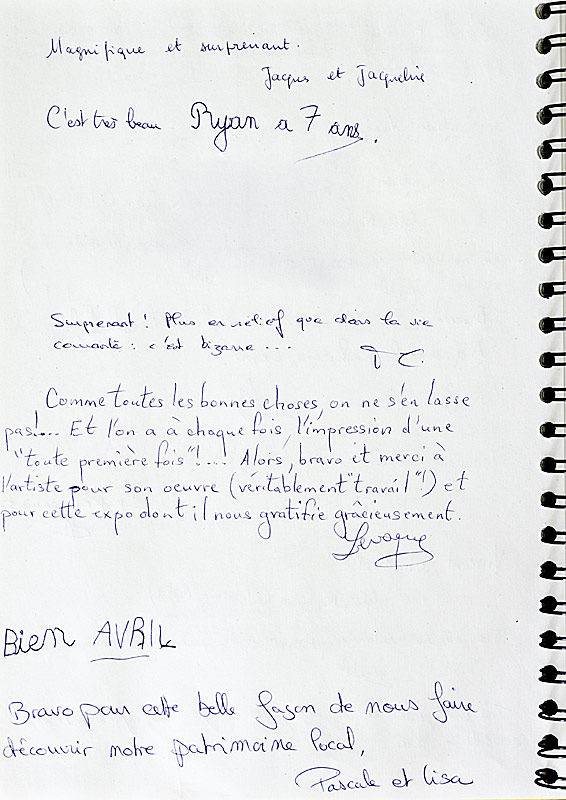 Magnifique et surprenant.
Jacques et Jacqueline
C'est très beau Ryan a 7 ans.
Surprenant ! Plus en relief que dans la vie
courante : c'est bizarre ...
C.
Comme toutes les bonnes choses, on ne s'en lasse
pas!... Et l'on a à chaque fois, l'impression d'une
"toute première fois"!... Alors, bravo et merci à
l'artiste pour son oeuvre (véritablement "travail"!) et
pour cette expo dont il nous gratifie grâcieusement.
Bien AVRIL
Bravo pour cette belle façon de nous faire
découvrir notre patrimoine local,
Pascale et Lisa